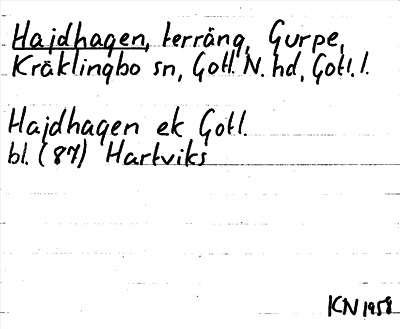 Hajdhagen, terräng, Gurpe,
Kräklingbo sn, Gotl. N. hd, Gotl. l.
Hajdhagen ek Gotl.
bl. (87) Hartviks
KN 1958